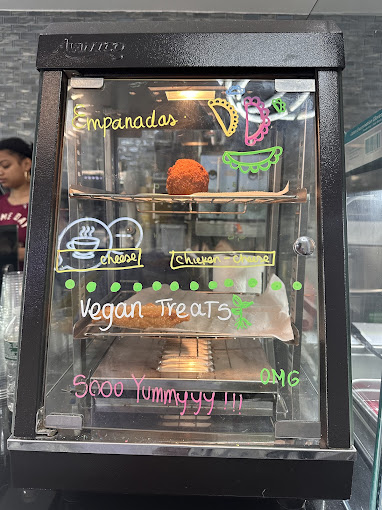 Empanadas
cheese
Chicken-cheese
Vegan Treats
OMG
Sooo Yummyyy !!!